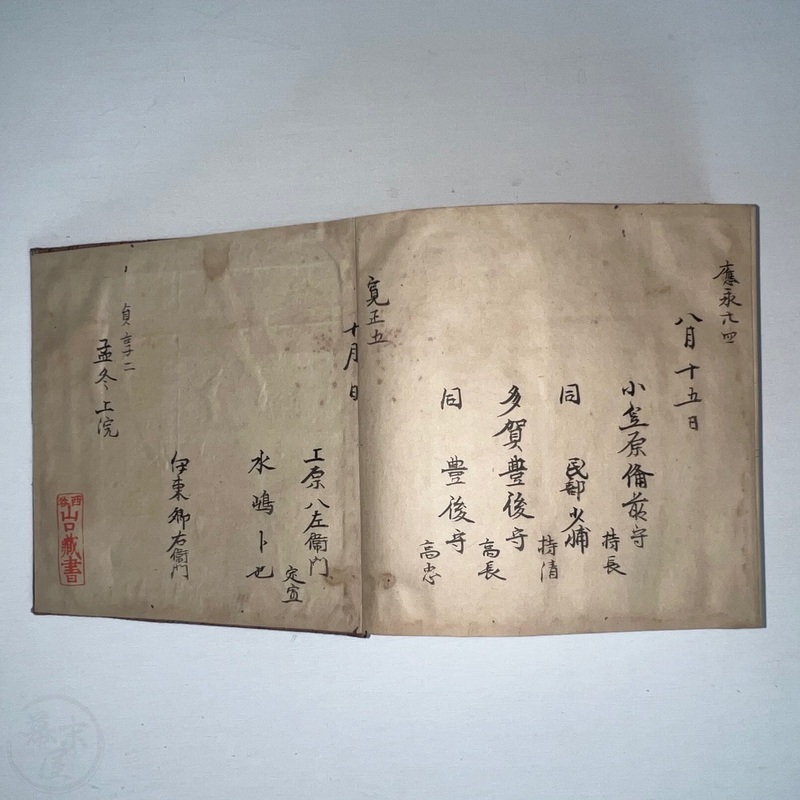 應永六四
八月十五日
小笠原備前守
持長
同 民部少輔
持清
多賀豊後守
高長
同 豊後守
高忠
寛正五
十月日
上原八左衛門
定宣
水嶋卜也
伊東郷右衛門
貞享二
孟冬上浣
山口蔵書